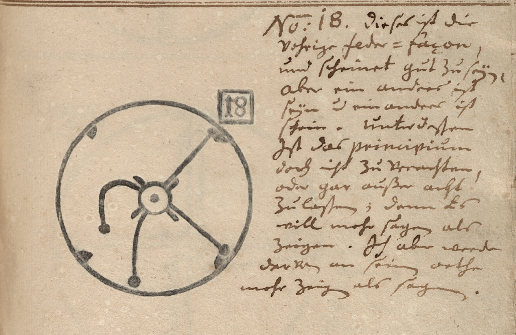 No: 18. Dieses ist die
vohrige feder = façon,
und scheinet gut zu seÿn,
aber ein anders ist
seÿn u ein anders ist
schein. Unterdessen
Ist das principium
doch nicht zu verachten,
oder gar außer acht
zu lassen; denn Es
will mehr sagen als
zeigen. Ich aber werde
darvon an seinem orthe
mehr zeigen als sagen.
18